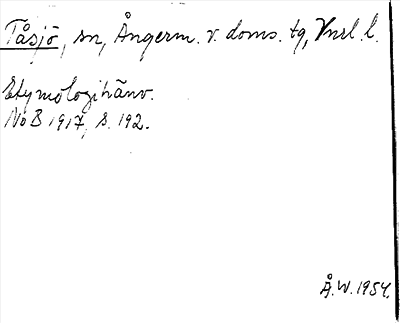 Tåsjö, sn, Ångerm. v. doms. tg, Vnrl. l.
Etymologihänv.
NoB 1917, s. 192.
Å.W. 1954.